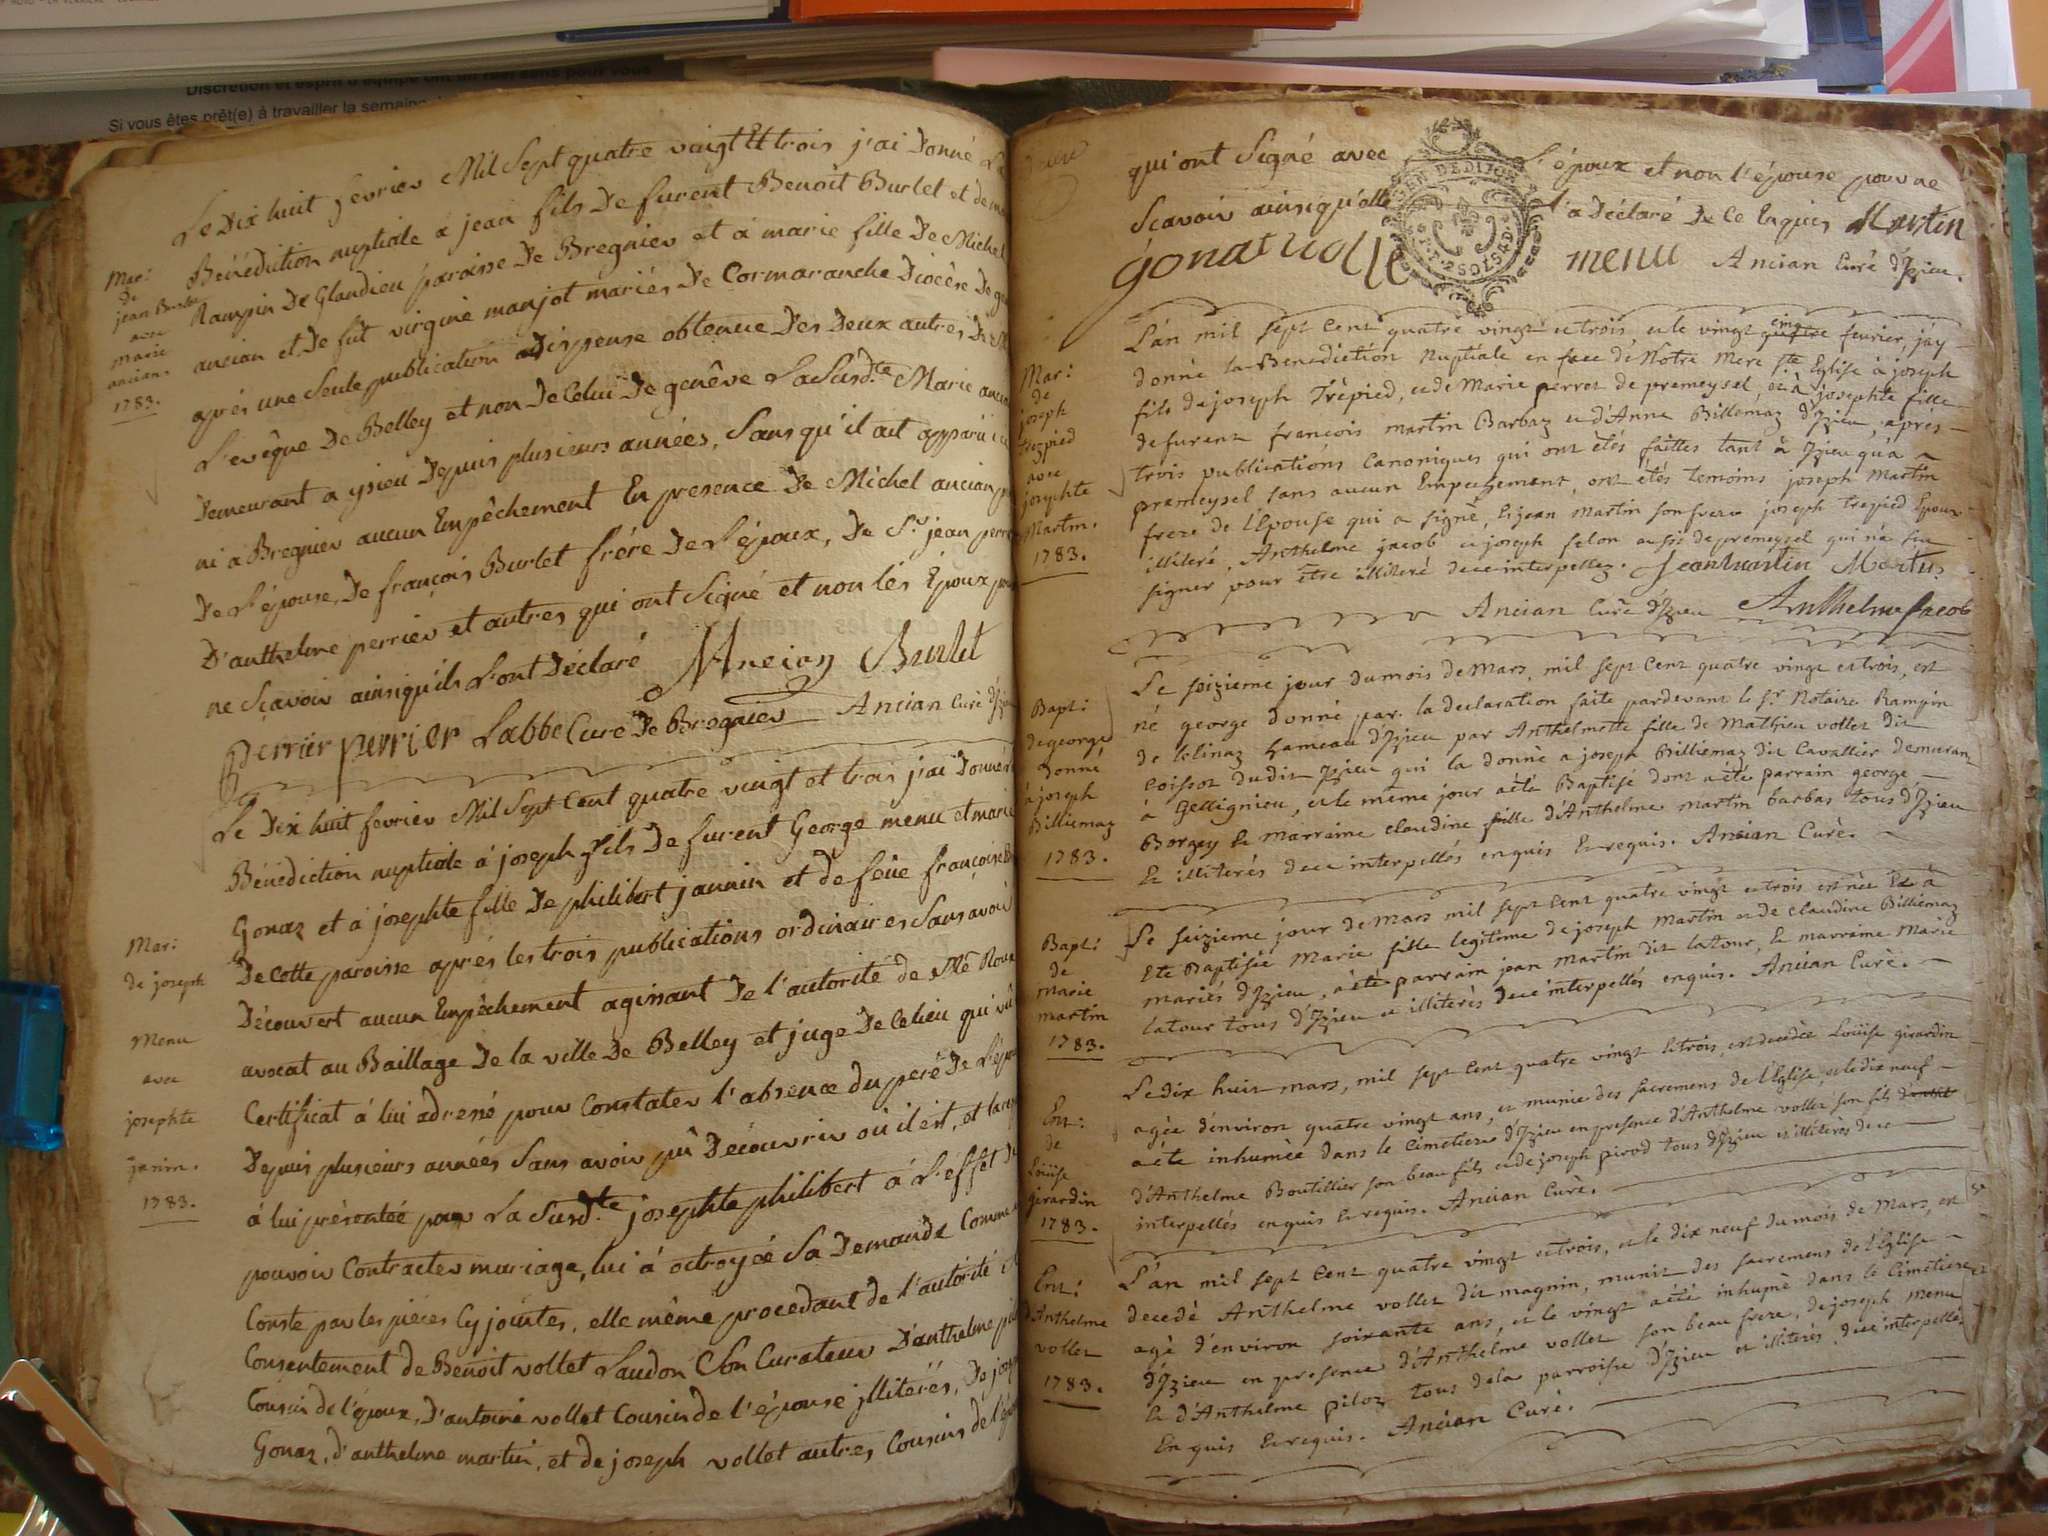 Discrétion et esprit d'équipe ont un réel sens pour vous
Si vous êtes prêt(e) à travailler la semaine
Le Dix huit fevrier Mil Sept quatre vingt Et trois j'ai Donné La
Bénédiction nuptiale a jean fils De furent Benoit Burlet et de
Rampin De Glandieu paroisse De Bregnier et à marie fille De Michel
ancian et De fut virgine manjot mariés De Cormaranche Diocèse De
aprés une Seule publication Dispense obtenue Des Deux autres De
L'evêque De Belley et non De Celui De genêve La Susd.te Marie
Demeurant a ysieu Depuis plusieurs années, Sans qu'il ait apparu
ni a Bregnier aucun Empêchement En presence De Michel ancian
De L'épouse, De françois Burlet frére De L'époux, De S.r jean
D'anthelme perrier et autres qui ont Signé et non lés Epoux
ne Sçavoir ainsiqu'ils L'ont Déclaré Ancian Burlet
perrier perrier Labbe Curé De Bregnier Ancian Curé
Mar:
de
jean Burlet
avec
marie
ancian.
1783.
Le Dix huit fevrier Mil Sept Cent quatre vingt et trois j'ai Donné
Bénédiction nuptiale á joseph fils De furent George menu et marie
Gonaz et à josephte fille De philibert jannin et de feüe françoise
De Cette paroisse aprés les trois publications ordinaires Sans avoir
Découvert aucun Empêchement agissant De l'autorité de
avocat au Baillage De la ville De Belley et juge De Celieu qui
Certificat á lui adressé pour Constater l'absence du peré De
Depuis plusieurs années Sans avoir pû Découvrir où il est, et
á lui présentée par La Susd.te josephte philibert á L'éffet
pouvoir Contracter mariage, lui á octroyée Sa Demande Comme
Conste par les piéces Cy jointes, elle même procedant de l'autorité
Consentement de Benoit vollet Laudon Son Curateur D'anthelme
Cousin de l'époux, D'antoiné vollet Cousin de l'épouse illiterés, De
Gonaz, d'anthelme martin, et de joseph vollet autres Cousins de
Mar:
de joseph
Menu
avec
josephte
janin.
1783.
qui ont Signé avec L'époux et non l'épouse pour ne
Scavoir ainsiqu'elle l'a Déclaré De Ce Enquis Martin
gonat menu Ancian Curé d'Izieu.
L'án mil sept Cent quatre vingt et trois, et le vingt quatre cinq fevrier, j'ay
donné la Benediction Nuptiale en face de Notre Mere s.te Eglise à joseph
fils de joseph Trépied, et de Marie perret de premeysel, et à josephte fille
de furent françois martin Barbaz et d'Anne Billémaz d'Izieu, aprés
trois publications Canoniques qui ont étés faittes tant à Izieu qu'à
premeysel sans aucun Empechement, ont étés temoins joseph Martin
frere de L'Epouse qui a signé, Et jean Martin son frere joseph trepied Epoux
illiteré, Anthelme jacob et joseph felon aussi de premeysel qui n'a su
signer pour être illiteré de ce interpellez. Jean martin Martin
Ancian Curé d'Izieu Anthelme Jacob
Mar:
de
joseph
trepied
avec
josephte
Martin.
1783.
Le seizieme jour du mois de Mars, mil sept Cent quatre vingt et trois, est
né george donné par la declaration faite pardevant le S.r Notaire Rampin
de lelinaz hameau d'Izieu par Anthelmette fille de Mathieu vollet dit
Coissot dudit Izieu qui la donné a joseph Billiemaz dit Cavallier demurant
à Gelligniou, et le même jour aété Baptisé dont aété parrain george
Borgey Et marraine claudine fille d'Anthelme martin barbas tous d'Izieu
Et illiterés de ce interpellés enquis Et requis. Ancian Curé.
Bapt:
de george
donné
à joseph
Billiemaz
1783.
Le seizieme jour de Mars mil sept Cent quatre vingt et trois est née Et à
Eté Baptisée Marie fille legitime de joseph Martin et de claudine Billiemaz
mariés d'Izieu, a été parrain jean Martin dit latour, Et marraine Marie
latour tous d'Izieu et illiterés de ce interpellés enquis. Ancian Curé.
Bapt:
de
marie
martin
1783.
Le dix huit mars, mil sept Cent quatre vingt Et trois, est decedée Loüise girardin
agée d'environ quatre vingt ans, et munie des sacremens de l'Eglise, et le dix neuf
aété inhumée dans le Cimetiere d'Izieu en presence d'Anthelme vollet son fils
d'Anthelme Boutillier son beau fils et de joseph pirod tous d'Izieu et illiterés de ce
interpellés enquis Et requis. Ancian Curé.
Ent:
de
Loüise
girardin
1783.
L'án mil sept Cent quatre vingt et trois, et le dix neuf du mois de Mars, est
decedé Anthelme vollet dit magnin, munit des sacremens de l'Eglise
agé d'environ soixante ans, et le vingt aété inhumé dans le Cimetiere
d'Izieu en presence d'Anthelme vollet son beau frere, de joseph menu
Et d'Anthelme piloz tous de la parroisse d'Izieu et illiterés de ce interpellés
Enquis Et requis. Ancian Curé.
Ent:
d'Anthelme
vollet
1783.